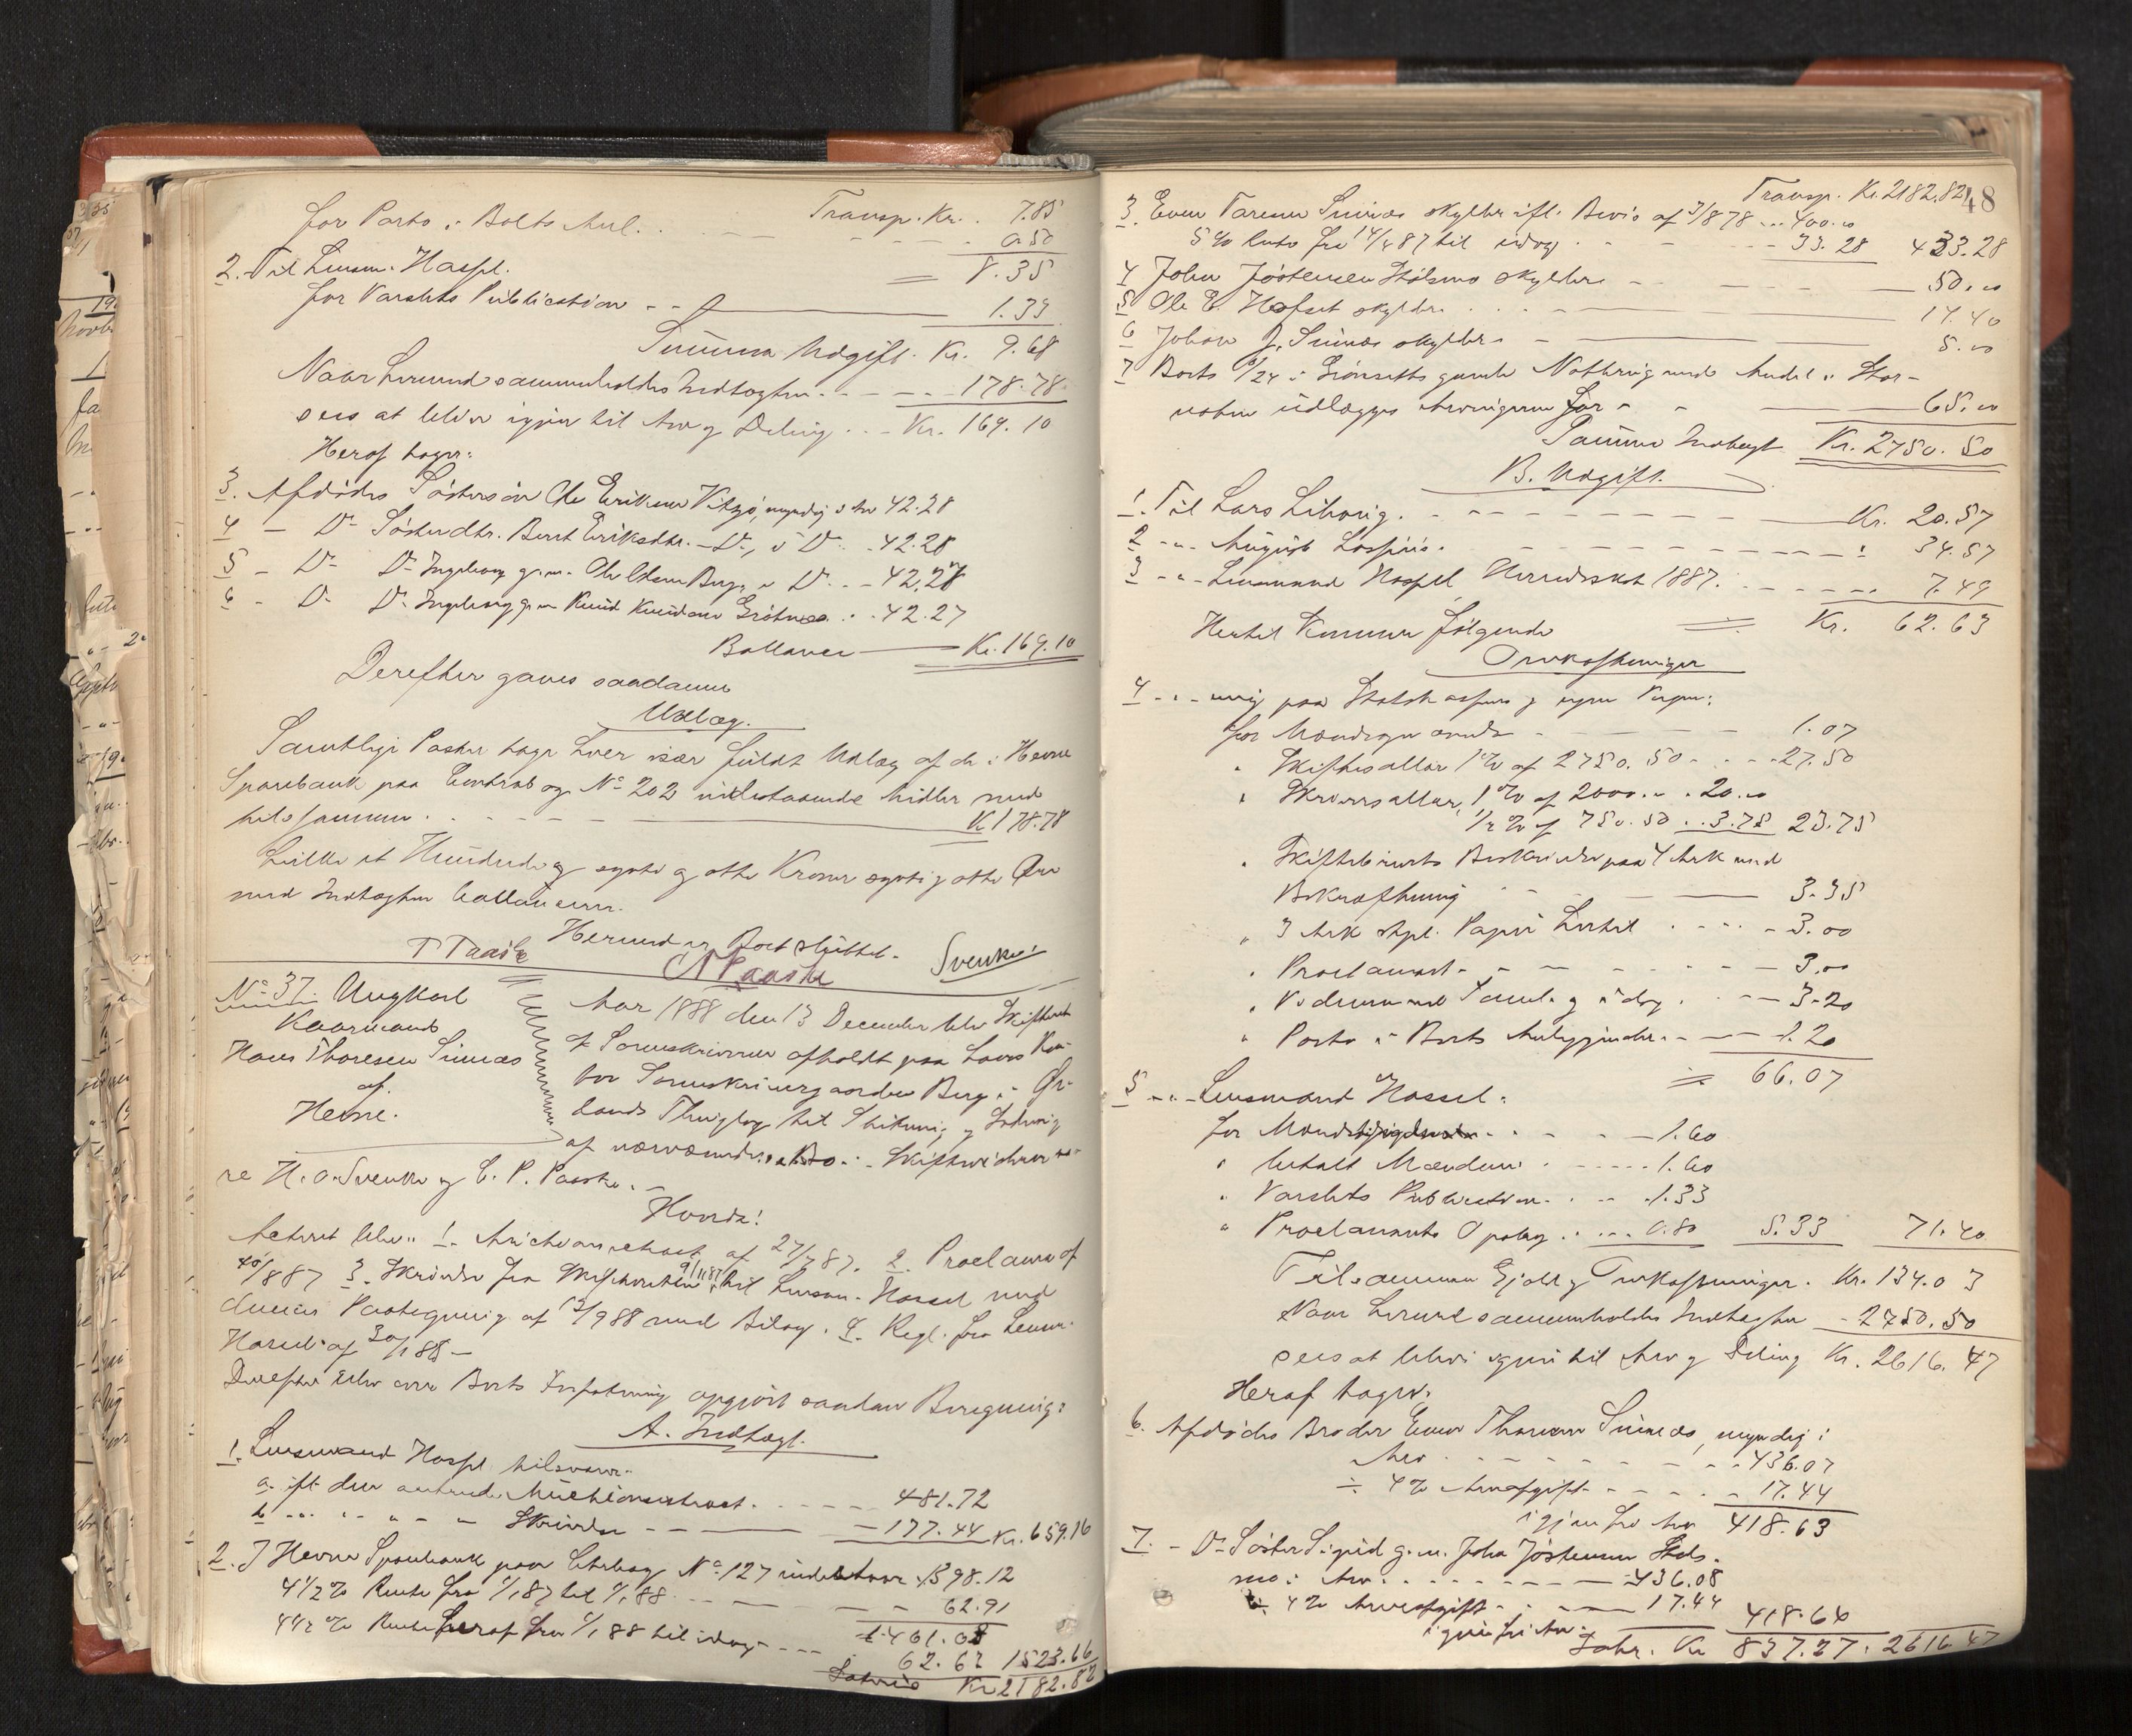 Transp. Kr. 7.85
for Porto i Boets Anl. 0.50
2. Til Lensm. Hassel. = 8.35
for Varslets Publication 1.33
Summa Udgift. Kr. 9.68
Naar hermed sammenholdes Indtægten 178.78
sees at blive igjen til Arv og Deling Kr. 169.10
Heraf tager:
3. Afdødes Søstersøn Ole Eriksen myndig s Arv 42.28
4 - Do Søsterdtr. Berit Eriksdtr. - Do, s Do 42.28
5 - Do Do Ingeborg g. m. Ole Olsen Berg, s Do 42.27
6 - Do Do Ingeborg g. m. Knud Knudsen Grøtnes 42.27
Ballance Kr. 169.10
Derefter gaves saadanne
Udlæg.
Samtlige Poster tage hver især fuldt Udlæg af de i Hevne
Sparebank paa Contrabog No 202 indestaaende Midler med
tilsammen K 178.78
hvilke et Hundrede og sytti og otte Kroner sytti og otte Øre
med Indtægten ballancerer.
Hermed er Boet sluttet.
Svenke
No 37. Ungkarl
Hans Thoresen Sinnæs
af
Hevne.
Aar 1888 den 13 December blev Skifteret
af Sorenskriveren afholdt paa hans Kon-
tor Sorenskrivergaarden Berg i Ør-
lands Thinglag til Slutning og Lodning
af nærværende Bo. Skiftevidner va-
re H. O. Svenke og C. P. Paaske.
Hvorda!
Acteret blev: 1. Auctionsextract af 27/7 87. 2. Proclama af
/8 87 3. Skrivelse fra Skifteretten 9/11 87 til Lensm. Hassel med
dennes Paategning af 13/9 88 med Bilag. 4. Regl. fra Lensm.
Hassel af 30/1 88 -
Derefter blev over Boets Forfatning opgjort saadan Beregning:
A. Indtægt.
1. Lensmand Hassel tilsvarer
a. ifl. den anførte Auctionsextract. 481.72
b " " " " Skrivelse 177.44 Kr. 659.16
2. I Hevne Sparebank paa Ctrbog No 127 indestaar 1398.12
4 1/2 % Rente fra 1/1 87 til 1/1 88 62.91
1461.03
4 1/2 % Rente heraf fra 1/1 88 til idag 62.63 1523.66
Latus Kr 2182.82
48
Transp. Kr. 2182.82
3. Even Taresen Sinnæs skylder ifl. Bevis af 3/8 78 400.00
5 % Rente fra 14/4 87 til idag 33.28 433.28
4 John Jøstensen Stølsmo skylder 50.00
5 Ole E. Hofset skylder 14.40
6 Johan J. Sinnæs skylder 5.00
7 Boets 6/24 i Grønsetts gamle Nothring med Andel i Stor-
noten udlægges Arvingerne for 65.00
Summa Indtægt Kr. 2750.50
B. Udgift.
1. Til Lars Lihovig. Kr. 20.57
2 - " - August Lossius. 34.57
3 - " - Lensmand Hassel, Herredsskat 1887. 7.49
= Kr. 62.63
Hertil kommer følgende
Omkostninger
4 - " - mig paa Statskassens og egne Vegne:
for Mændsopnævnelse 1.07
" Skiftesallar 1 % af 2750.50 27.50
" Skriversallar, 1 % af 2000.00 20.00
1/2 % af 750.50 3.75 23.75
" Skiftebrevets Beskrivelse paa 4 Ark med
Bekræftning 3.35
" 3 Ark stpl. Papir hertil 3.00
" Proclamaet 3.00
" Vidnerne med Saml. og idag 3.20
" Porto i Boets Anliggender 1.20
= 66.07
5 - " - Lensmand Hassel:
for 1.60
" betalt Mændene 1.60
" Varslets Publication 1.33
" Proclamaets Opslag 0.80 5.33 71.40
Tilsammen Gjæld og Omkostninger. Kr. 134.03
Naar hermed sammenholdes Indtægten 2750.50
sees at blive igjen til Arv og Deling Kr. 2616.47
Heraf tager:
6. Afdødes Broder Even Thoresen Sinnæs, myndig i
Arv 436.07
÷ 4 % Arveafgift 17.44
igjen fri Arv 418.63
7. - Do Søster Sigrid g. m. John Jøstensen Støls-
mo i Arv 436.08
÷ 4 % Arveafgift 17.44 418.64
igjen fri Arv
Latr. Kr 837.27. 2616.47